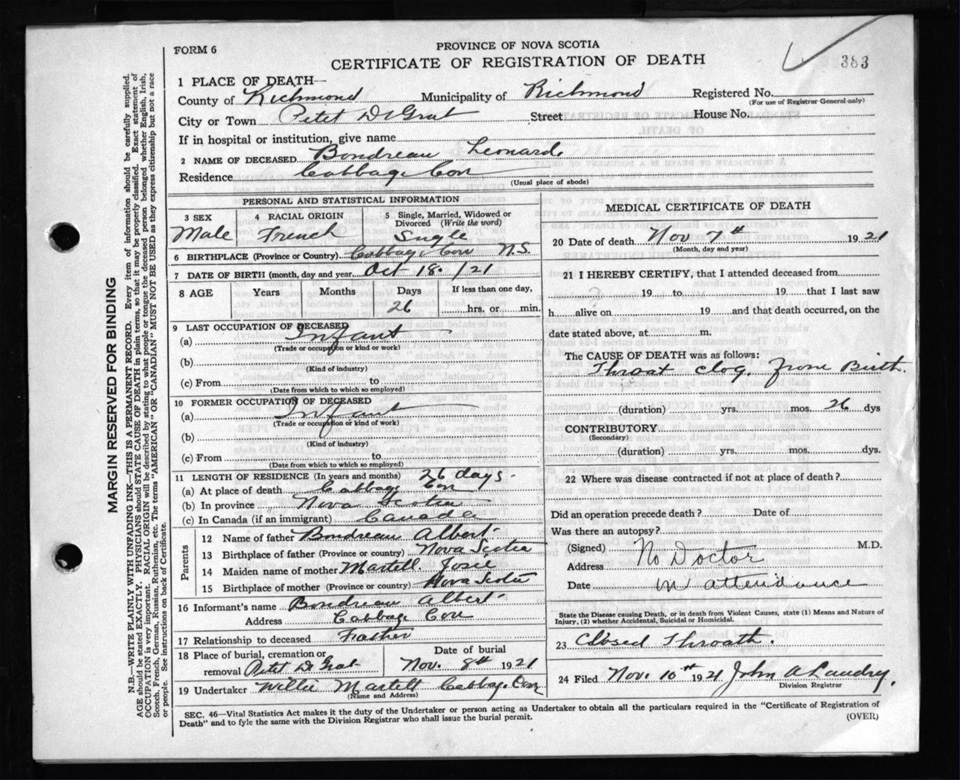 FORM 6
PROVINCE OF NOVA SCOTIA
383
CERTIFICATE OF REGISTRATION OF DEATH
1 PLACE OF DEATH—
County of Richmond Municipality of Richmond Registered No.
(For use of Registrar General only)
City or Town Petit De Grat Street House No.
If in hospital or institution, give name
2 NAME OF DECEASED Boudreau Leonard
Residence Cabbage Cove
(Usual place of abode)
PERSONAL AND STATISTICAL INFORMATION
3 SEX Male
4 RACIAL ORIGIN French
5 Single, Married, Widowed or Divorced (Write the word) Single
6 BIRTHPLACE (Province or Country) Cabbage Cove N.S.
7 DATE OF BIRTH (month, day and year) Oct 18. /21
8 AGE Years Months Days 26 If less than one day, hrs. or min.
9 LAST OCCUPATION OF DECEASED
(a) Infant
(Trade or occupation or kind of work)
(b)
(Kind of industry)
(c) From to
(Date from which to which so employed)
10 FORMER OCCUPATION OF DECEASED
(a) Infant
(Trade or occupation or kind of work)
(b)
(Kind of industry)
(c) From to
(Date from which to which so employed)
11 LENGTH OF RESIDENCE (In years and months) 26 days.
(a) At place of death Cabbage Cove
(b) In province Nova Scotia
(c) In Canada (if an immigrant) Canada
Parents
12 Name of father Boudreau Albert
13 Birthplace of father (Province or country) Nova Scotia
14 Maiden name of mother Martell Josie
15 Birthplace of mother (Province or country) Nova Scotia
16 Informant's name Boudreau Albert
Address Cabbage Cove
17 Relationship to deceased Father
18 Place of burial, cremation or removal Petit De Grat Date of burial Nov. 8th 1921
19 Undertaker Willie Martell Cabbage Cove
(Name and Address)
MEDICAL CERTIFICATE OF DEATH
20 Date of death Nov 7th 1921
(Month, day and year)
21 I HEREBY CERTIFY, that I attended deceased from
19 to 19 that I last saw
h alive on 19 and that death occurred, on the
date stated above, at m.
The CAUSE OF DEATH was as follows:
Throat Clog. From Birth.
(duration) yrs. mos. 26 dys
CONTRIBUTORY
(Secondary)
(duration) yrs. mos. dys
22 Where was disease contracted if not at place of death?
Did an operation precede death? Date of
Was there an autopsy?
(Signed) No Doctor M.D.
Address
Date in attendance
State the Disease causing Death, or in death from Violent Causes, state (1) Means and Nature of
Injury, (2) whether Accidental, Suicidal or Homicidal.
23 Closed Throath.
24 Filed Nov. 10th 1921 John A Landry.
Division Registrar
SEC. 46—Vital Statistics Act makes it the duty of the Undertaker or person acting as Undertaker to obtain all the particulars required in the "Certificate of Registration of
Death" and to fyle the same with the Division Registrar who shall issue the burial permit.
(OVER)
MARGIN RESERVED FOR BINDING
N.B.—WRITE PLAINLY WITH UNFADING INK—THIS IS A PERMANENT RECORD. Every item of information should be carefully supplied.
AGE should be stated EXACTLY. PHYSICIANS should STATE CAUSE OF DEATH in plain terms, so that it may be properly classified. Exact statement of
OCCUPATION is very important. RACIAL ORIGIN will be described by stating to what people or tongue the deceased person belonged whether English, Irish,
Scotch, French, German, Russian, Ruthenian, etc. The terms "AMERICAN" OR "CANADIAN" MUST NOT BE USED as they express citizenship but not a race
or people. See instructions on back of Certificate.